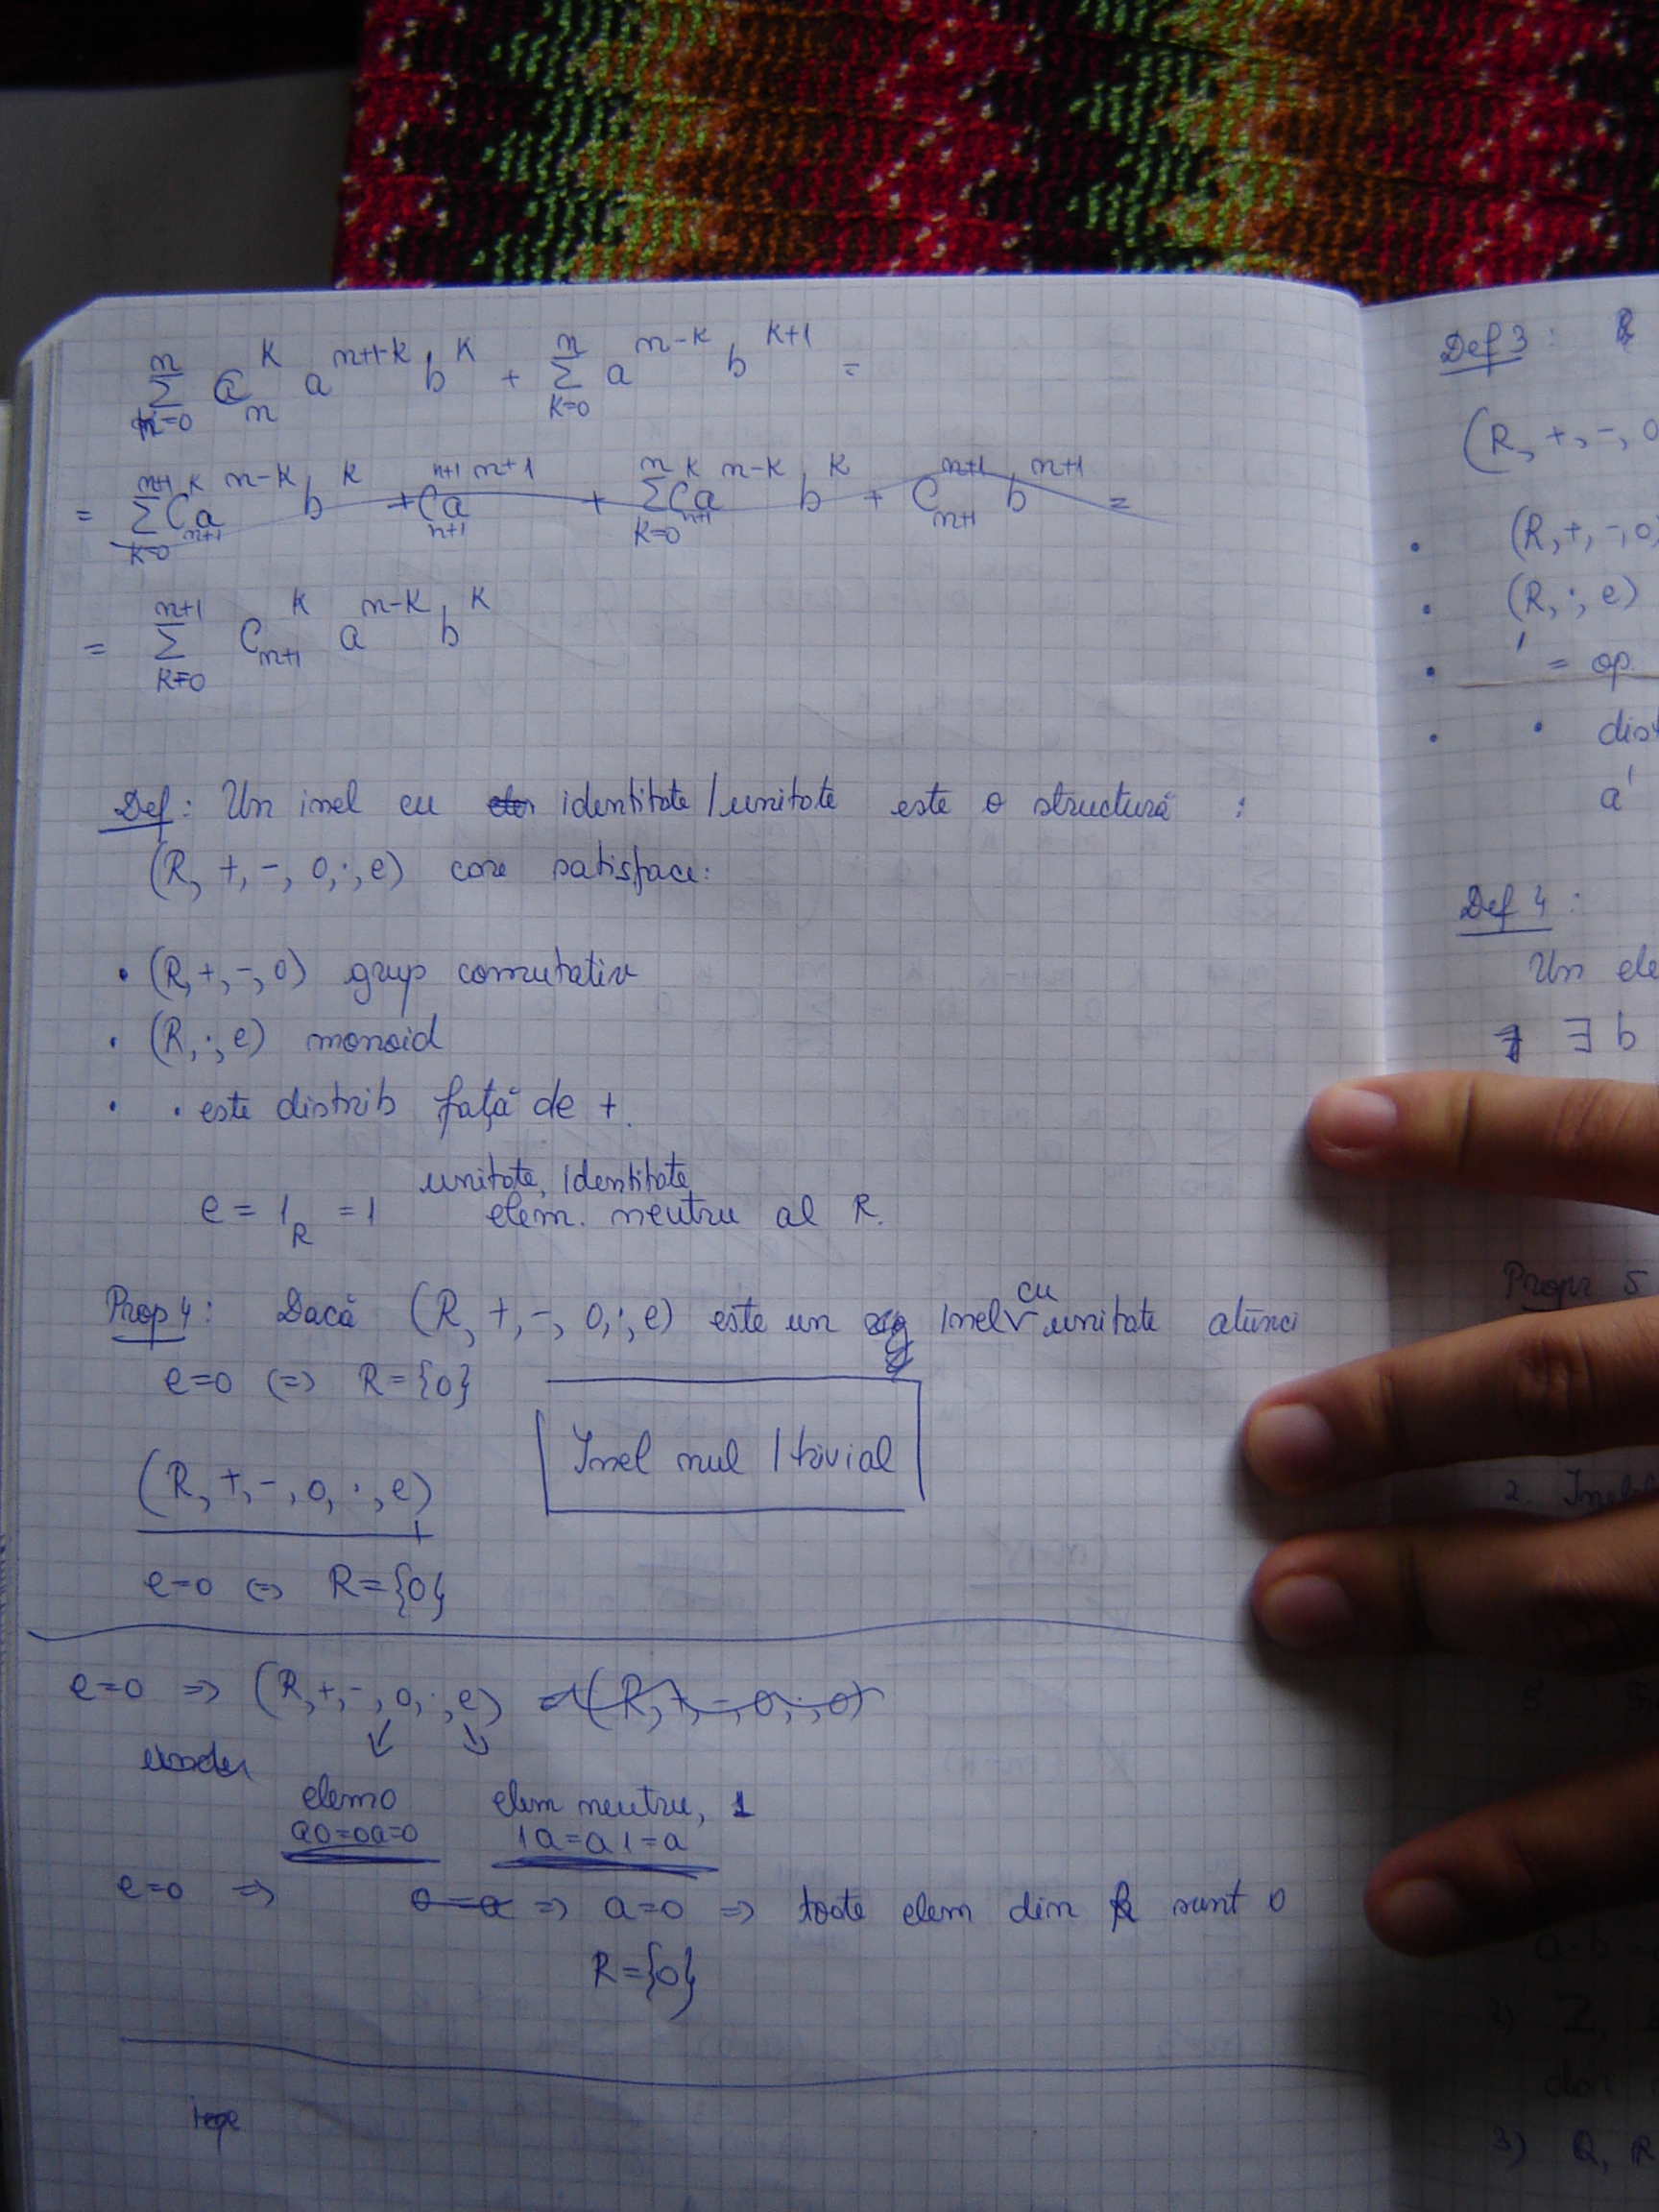 ∑_{k=0}^{n} C_n^k a^{n+1-k} b^k + ∑_{k=0}^{n} a^{n-k} b^{k+1} =
= ∑_{k=0}^{n+1} C_{n+1}^k a^{n-k} b^k + C_{n+1}^{n+1} a^{n+1} + ∑_{k=0}^{n} C_{n+1}^k a^{n-k} b^k + C_{n+1}^{n+1} b^{n+1} =
= ∑_{k=0}^{n+1} C_{n+1}^k a^{n-k} b^k
Def: Un inel cu identitate/unitate este o structură :
(R, +, -, 0, ·, e) care satisface:
• (R, +, -, 0) grup comutativ
• (R, ·, e) monoid
• · este distrib față de +.
unitate, identitate
e = 1_R = 1 elem. neutru al R.
Prop 4: Dacă (R, +, -, 0, ·, e) este un inel cu unitate atunci
e=0 (=> R={0}
Inel nul / trivial
(R, +, -, 0, ·, e)
e=0 (=> R={0}
e=0 => (R, +, -, 0, ·, e) = (R, +, -, 0, ·, 0)
elem 0 elem neutru, 1
a0=0a=0 1a=a1=a
e=0 => 0=a => a=0 => toate elem din R sunt 0
R={0}
Def 3:
(R, +, -, 0
• (R, +, -, 0)
• (R, ·, e)
• ' = op.
• · dist
a'
Def 4:
Un ele
∃ b
Propr 5
2. Inel
a·b
2) Z,
dar
3) Q, R